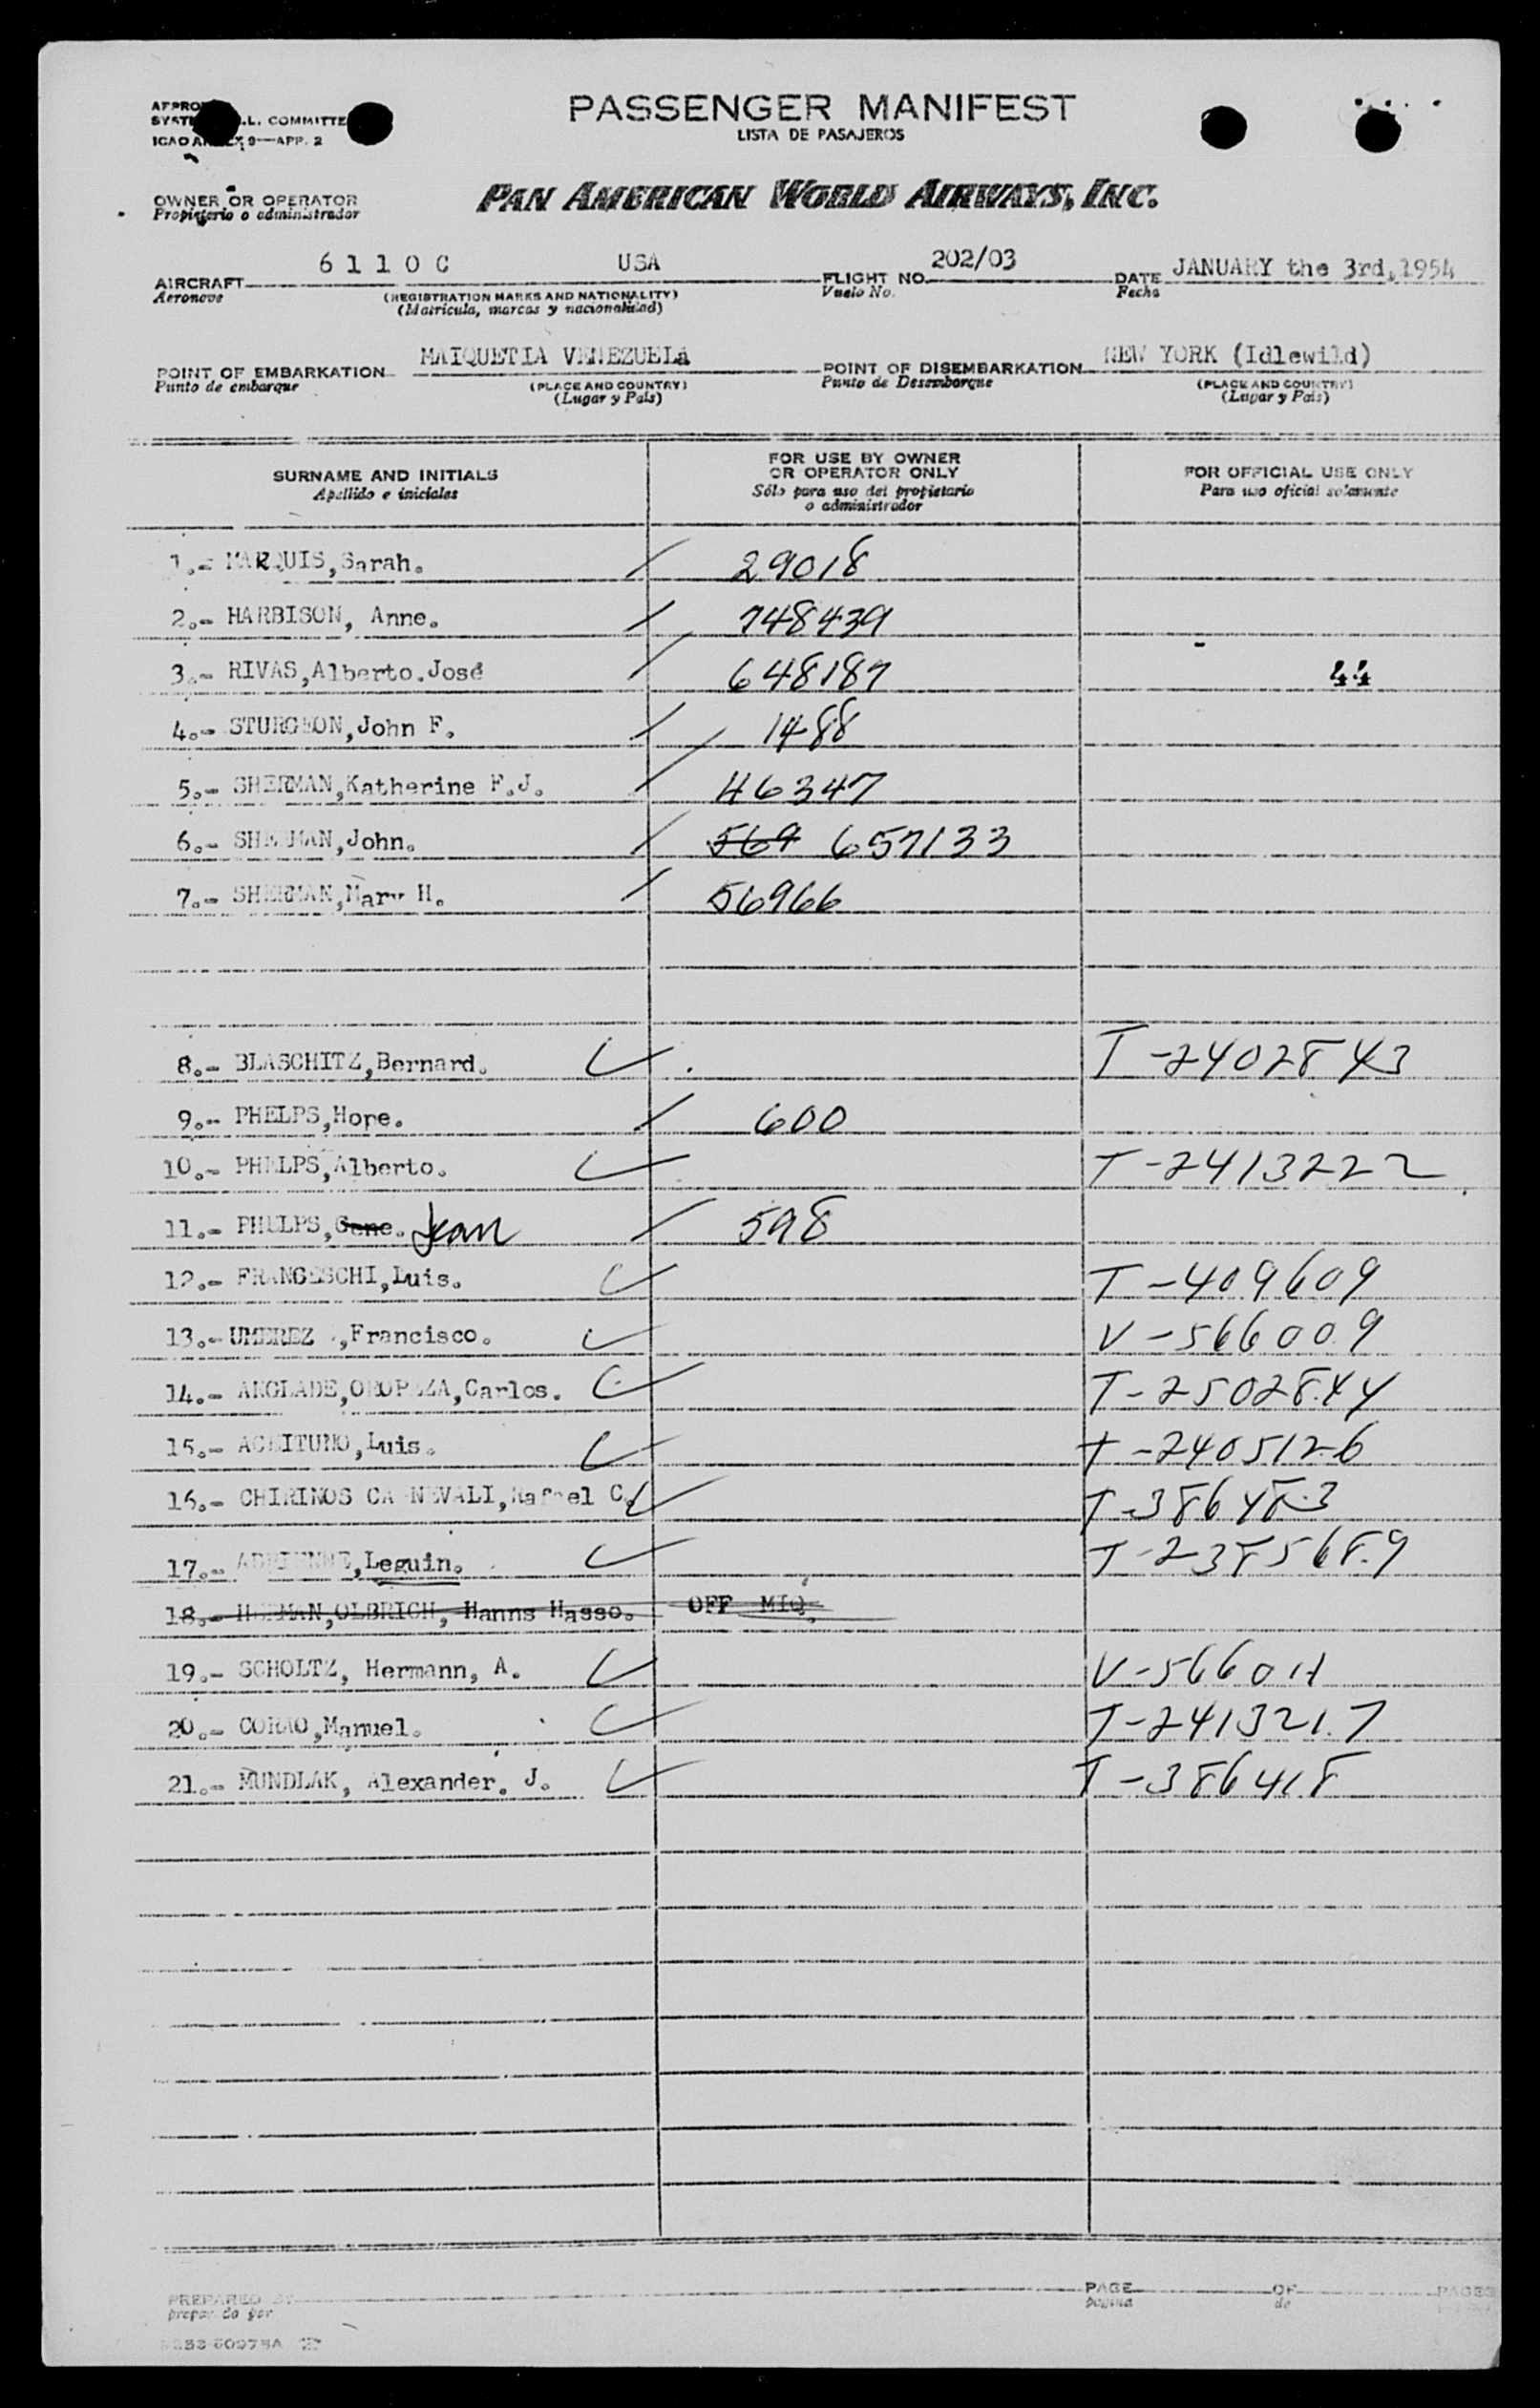 PASSENGER MANIFEST
LISTA DE PASAJEROS
COMMITTEE
ICAO 9—APP. 2
OWNER OR OPERATOR
Propietario o administrador
PAN AMERICAN WORLD AIRWAYS, INC.
AIRCRAFT 6 1 1 0 C USA FLIGHT NO. 202/03 DATE JANUARY the 3rd, 1954
Aeronave (REGISTRATION MARKS AND NATIONALITY) Vuelo No. Fecha
(Matrícula, marcas y nacionalidad)
POINT OF EMBARKATION MAIQUETIA VENEZUELA POINT OF DISEMBARKATION NEW YORK (Idlewild)
Punto de embarque (PLACE AND COUNTRY) Punto de Desembarque (PLACE AND COUNTRY)
(Lugar y País) (Lugar y País)
SURNAME AND INITIALS FOR USE BY OWNER OR OPERATOR ONLY FOR OFFICIAL USE ONLY
Apellido e iniciales Sólo para uso del propietario o administrador Para uso oficial solamente
1.- MARQUIS, Sarah. / 29018
2.- HARBISON, Anne. / 748439
3.- RIVAS, Alberto. José / 648187 44
4.- STURGEON, John F. / 1488
5.- SHERMAN, Katherine F.J. / 46347
6.- SHERMAN, John. / 569 657133
7.- SHERMAN, Mary H. / 56966
8.- BLASCHITZ, Bernard. ✓ T-2402843
9.- PHELPS, Hope. / 600
10.- PHELPS, Alberto. ✓ T-2413222
11.- PHELPS, Gene. Jean / 598
12.- FRANCESCHI, Luis. ✓ T-409609
13.- UMEREZ, Francisco. ✓ V-566009
14.- ANGLADE, OROPEZA, Carlos. ✓ T-2502844
15.- ACEITUNO, Luis. ✓ T-2405126
16.- CHIRINOS CARNEVALI, Rafael C. ✓ T-386483
17.- ADRIENNE, Leguin. ✓ T-2385689
18.- HERMAN, OLBRICH, Hanns Hasso. OFF MIQ.
19.- SCHOLTZ, Hermann, A. ✓ V-566011
20.- CORAO, Manuel. ✓ T-2413217
21.- MUNDLAK, Alexander. J. ✓ T-386418
PREPARED BY PAGE OF PAGES
preparado por página de